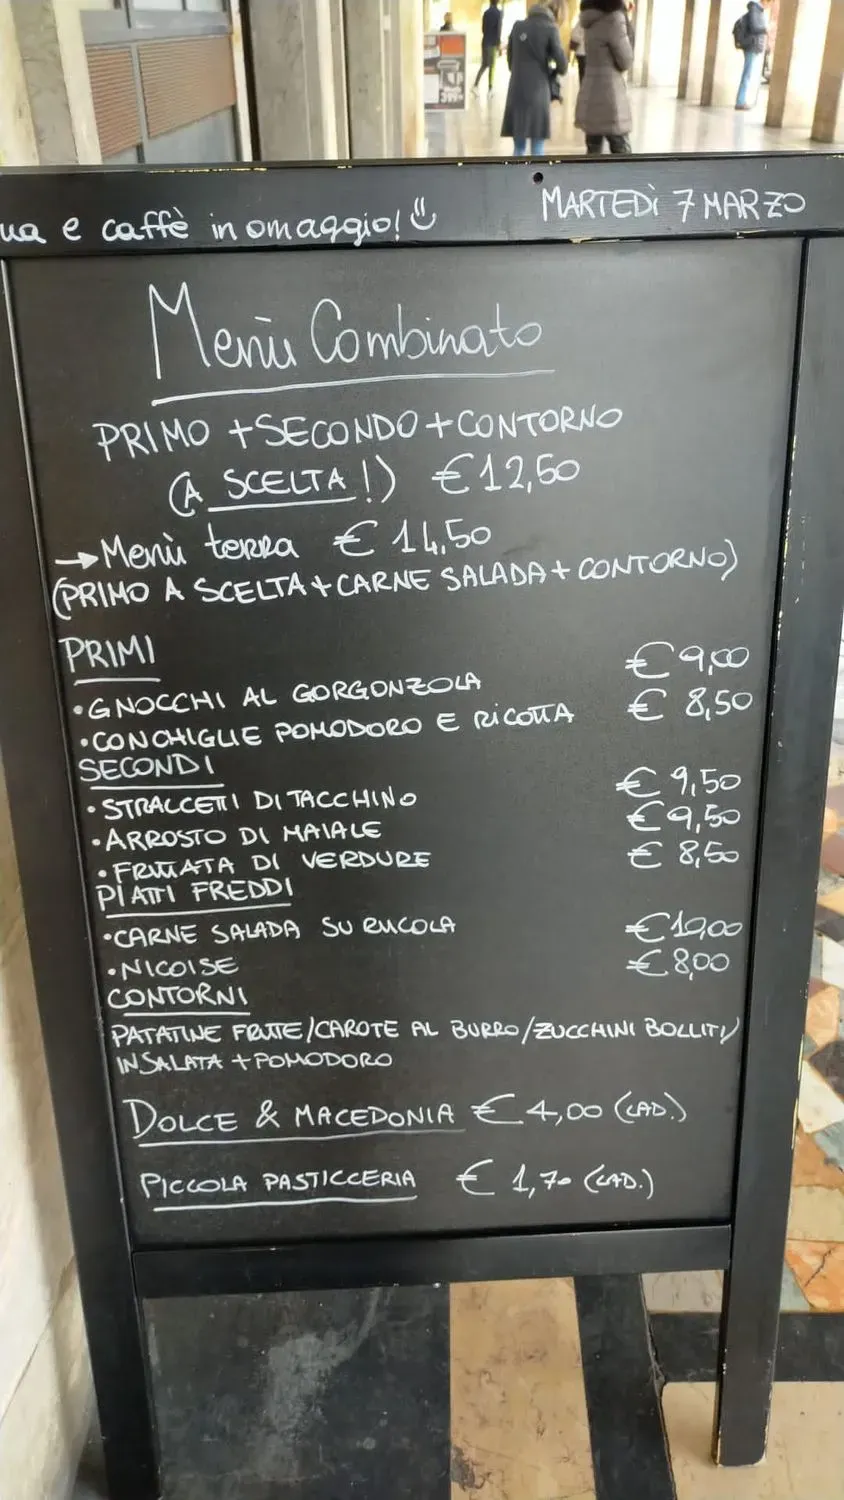 e caffè in omaggio!
MARTEDÌ 7 MARZO
Menù Combinato
PRIMO + SECONDO + CONTORNO
(A SCELTA!) € 12,50
→ Menù terra € 14,50
(PRIMO A SCELTA + CARNE SALADA + CONTORNO)
PRIMI
• GNOCCHI AL GORGONZOLA € 9,00
• CONCHIGLIE POMODORO E RICOTTA € 8,50
SECONDI
• STRACCETTI DI TACCHINO € 9,50
• ARROSTO DI MAIALE € 9,50
• FRITTATA DI VERDURE € 8,50
PIATTI FREDDI
• CARNE SALADA SU RUCOLA € 10,00
• NICOISE € 8,00
CONTORNI
PATATINE FRITTE/CAROTE AL BURRO/ZUCCHINI BOLLITI/
INSALATA + POMODORO
DOLCE & MACEDONIA € 4,00 (CAD.)
PICCOLA PASTICCERIA € 1,70 (CAD.)